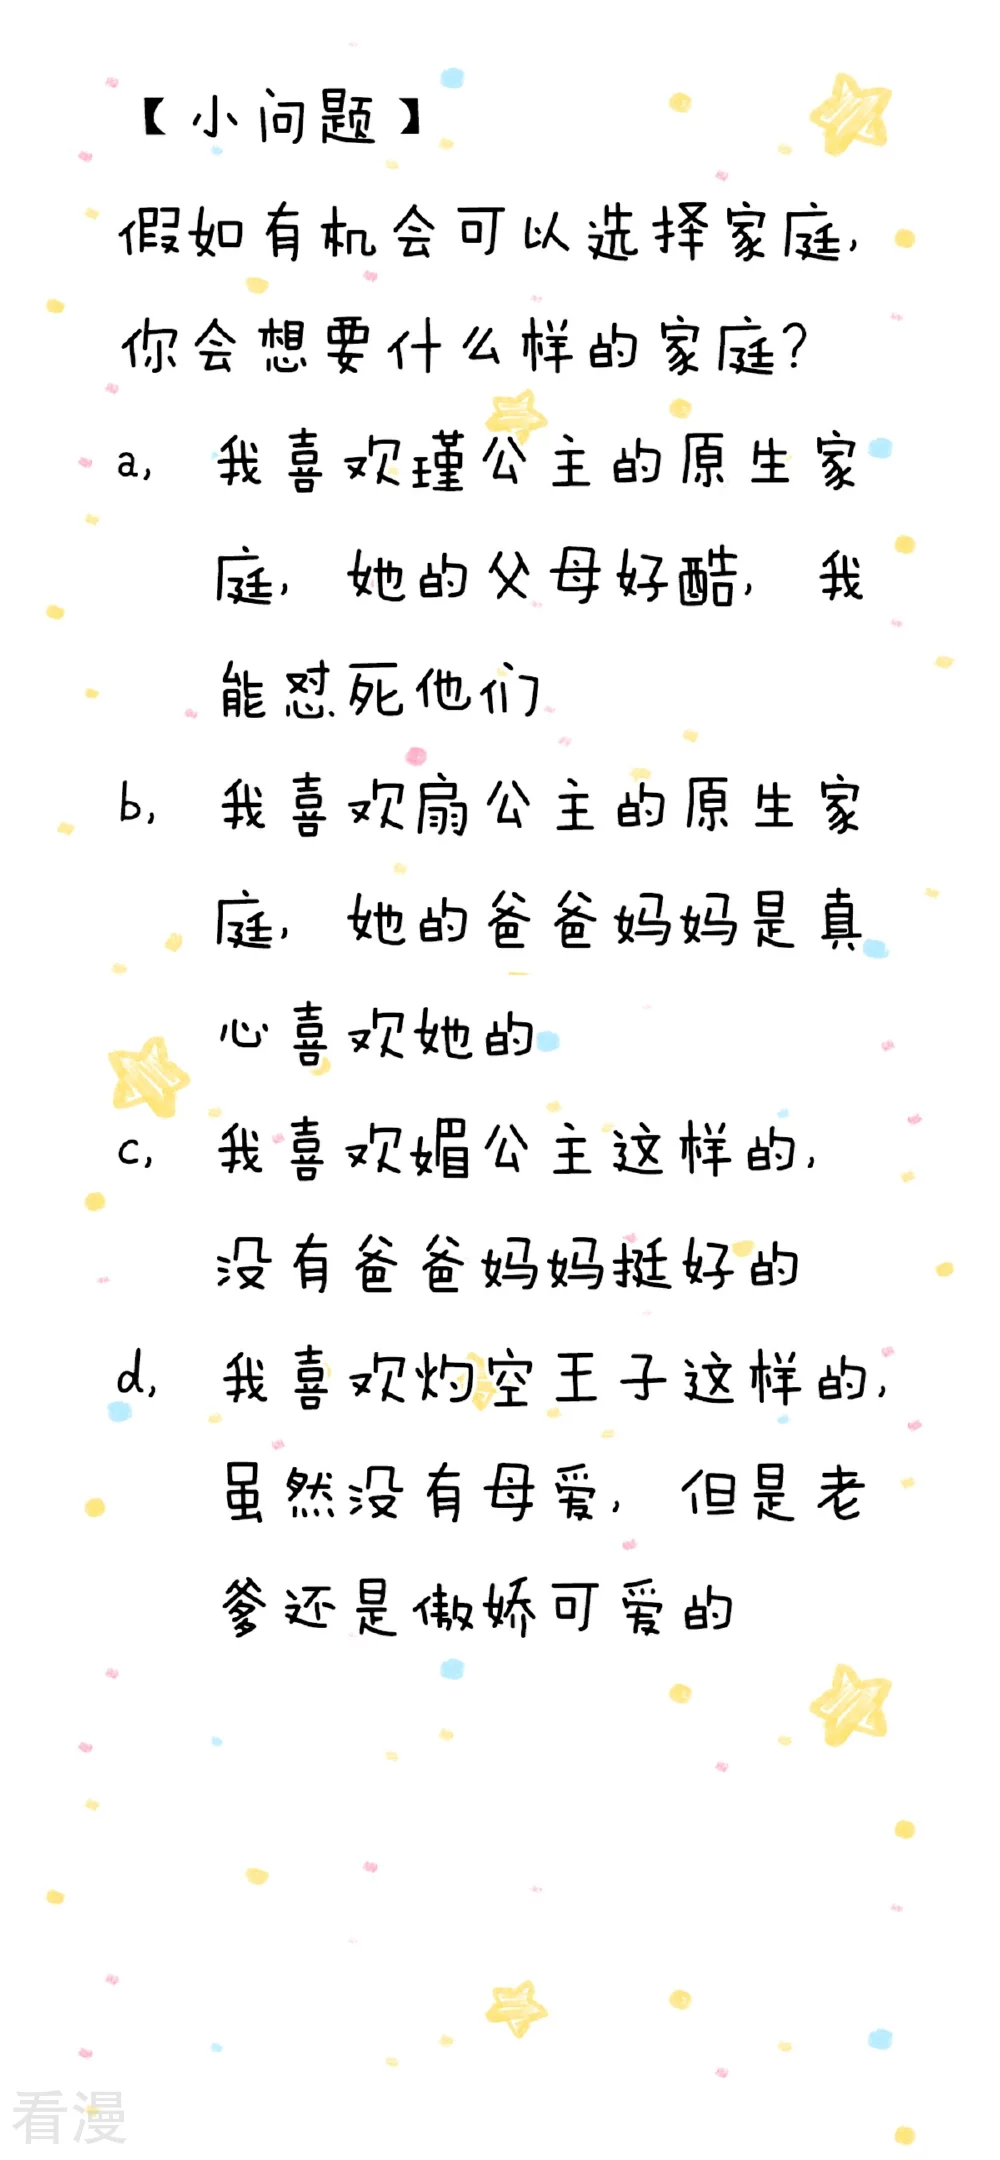 【小问题】
假如有机会可以选择家庭,
你会想要什么样的家庭?
a, 我喜欢瑾公主的原生家
庭, 她的父母好酷, 我
能怼死他们
b, 我喜欢扇公主的原生家
庭, 她的爸爸妈妈是真
心喜欢她的
c, 我喜欢媚公主这样的,
没有爸爸妈妈挺好的
d, 我喜欢灼空王子这样的,
虽然没有母爱, 但是老
爹还是傲娇可爱的
看漫